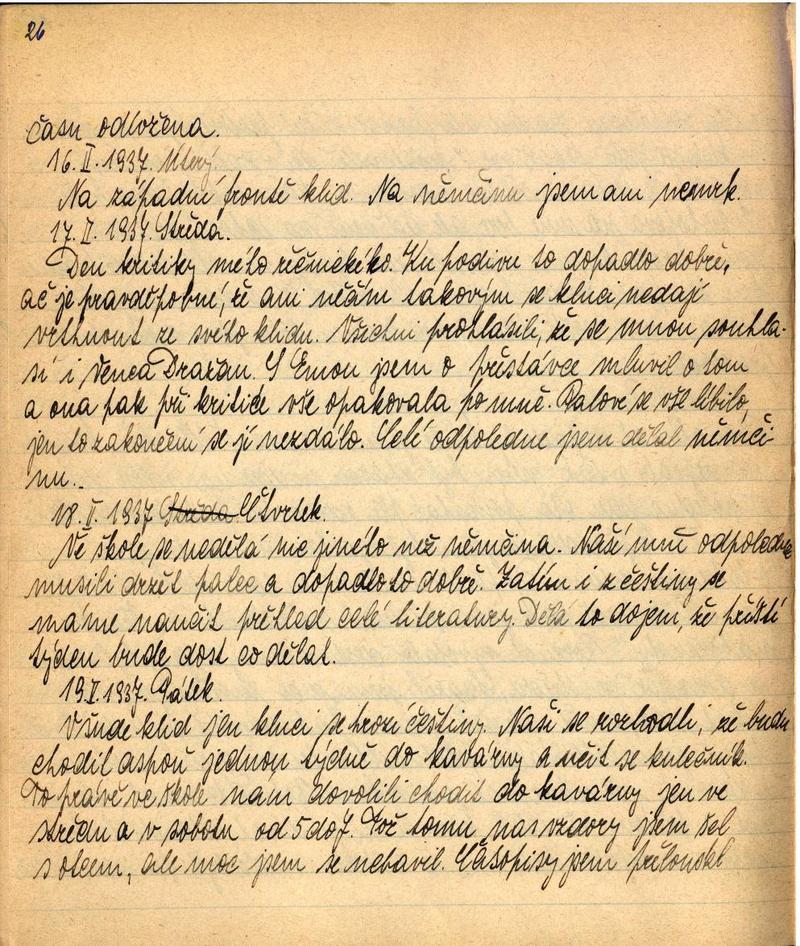 26
času odložena.
16. II. 1937. Úterý.
Na západní frontě klid. Na němčinu jsem ani nemrk.
17. II. 1937. Středa.
Den kritiky mého řečnického. Ku podivu to dopadlo dobře,
ač je pravděpobné, že ani něčím takovým se kluci nedají
vrthnout ze svého klidu. Všichni prohlásili, že se mnou souhla-
sí i Venca Dražan. S Emou jsem o přestávce mluvil o tom
a ona pak při kritice vše opakovala po mně. Palové se vše líbilo,
jen to zakončení se jí nezdálo. Celé odpoledne jsem dělal němči
nu.
18. II. 1937 Středa Čtvrtek.
Ve škole se nedělá nic jiného než němčina. Naši mně odpoledne
musili držet palec a dopadlo to dobře. Zatím i z češtiny se
máme naučit přehled celé literatury. Dělá to dojem, že příští
týden bude dost co dělat.
19. II. 1937. Pátek.
Všude klid jen kluci se hrozí češtiny. Naši se rozhodli, že budu
chodil aspoň jednou týdně do kavárny a učit se kulečník.
To právě ve škole nám dovolili chodit do kavárny jen ve
středu a v sobotu od 5 do 7. Tož tomu navzdory jsem šel
s otcem, ale moc jsem se nebavil. Časopisy jsem přelouskal